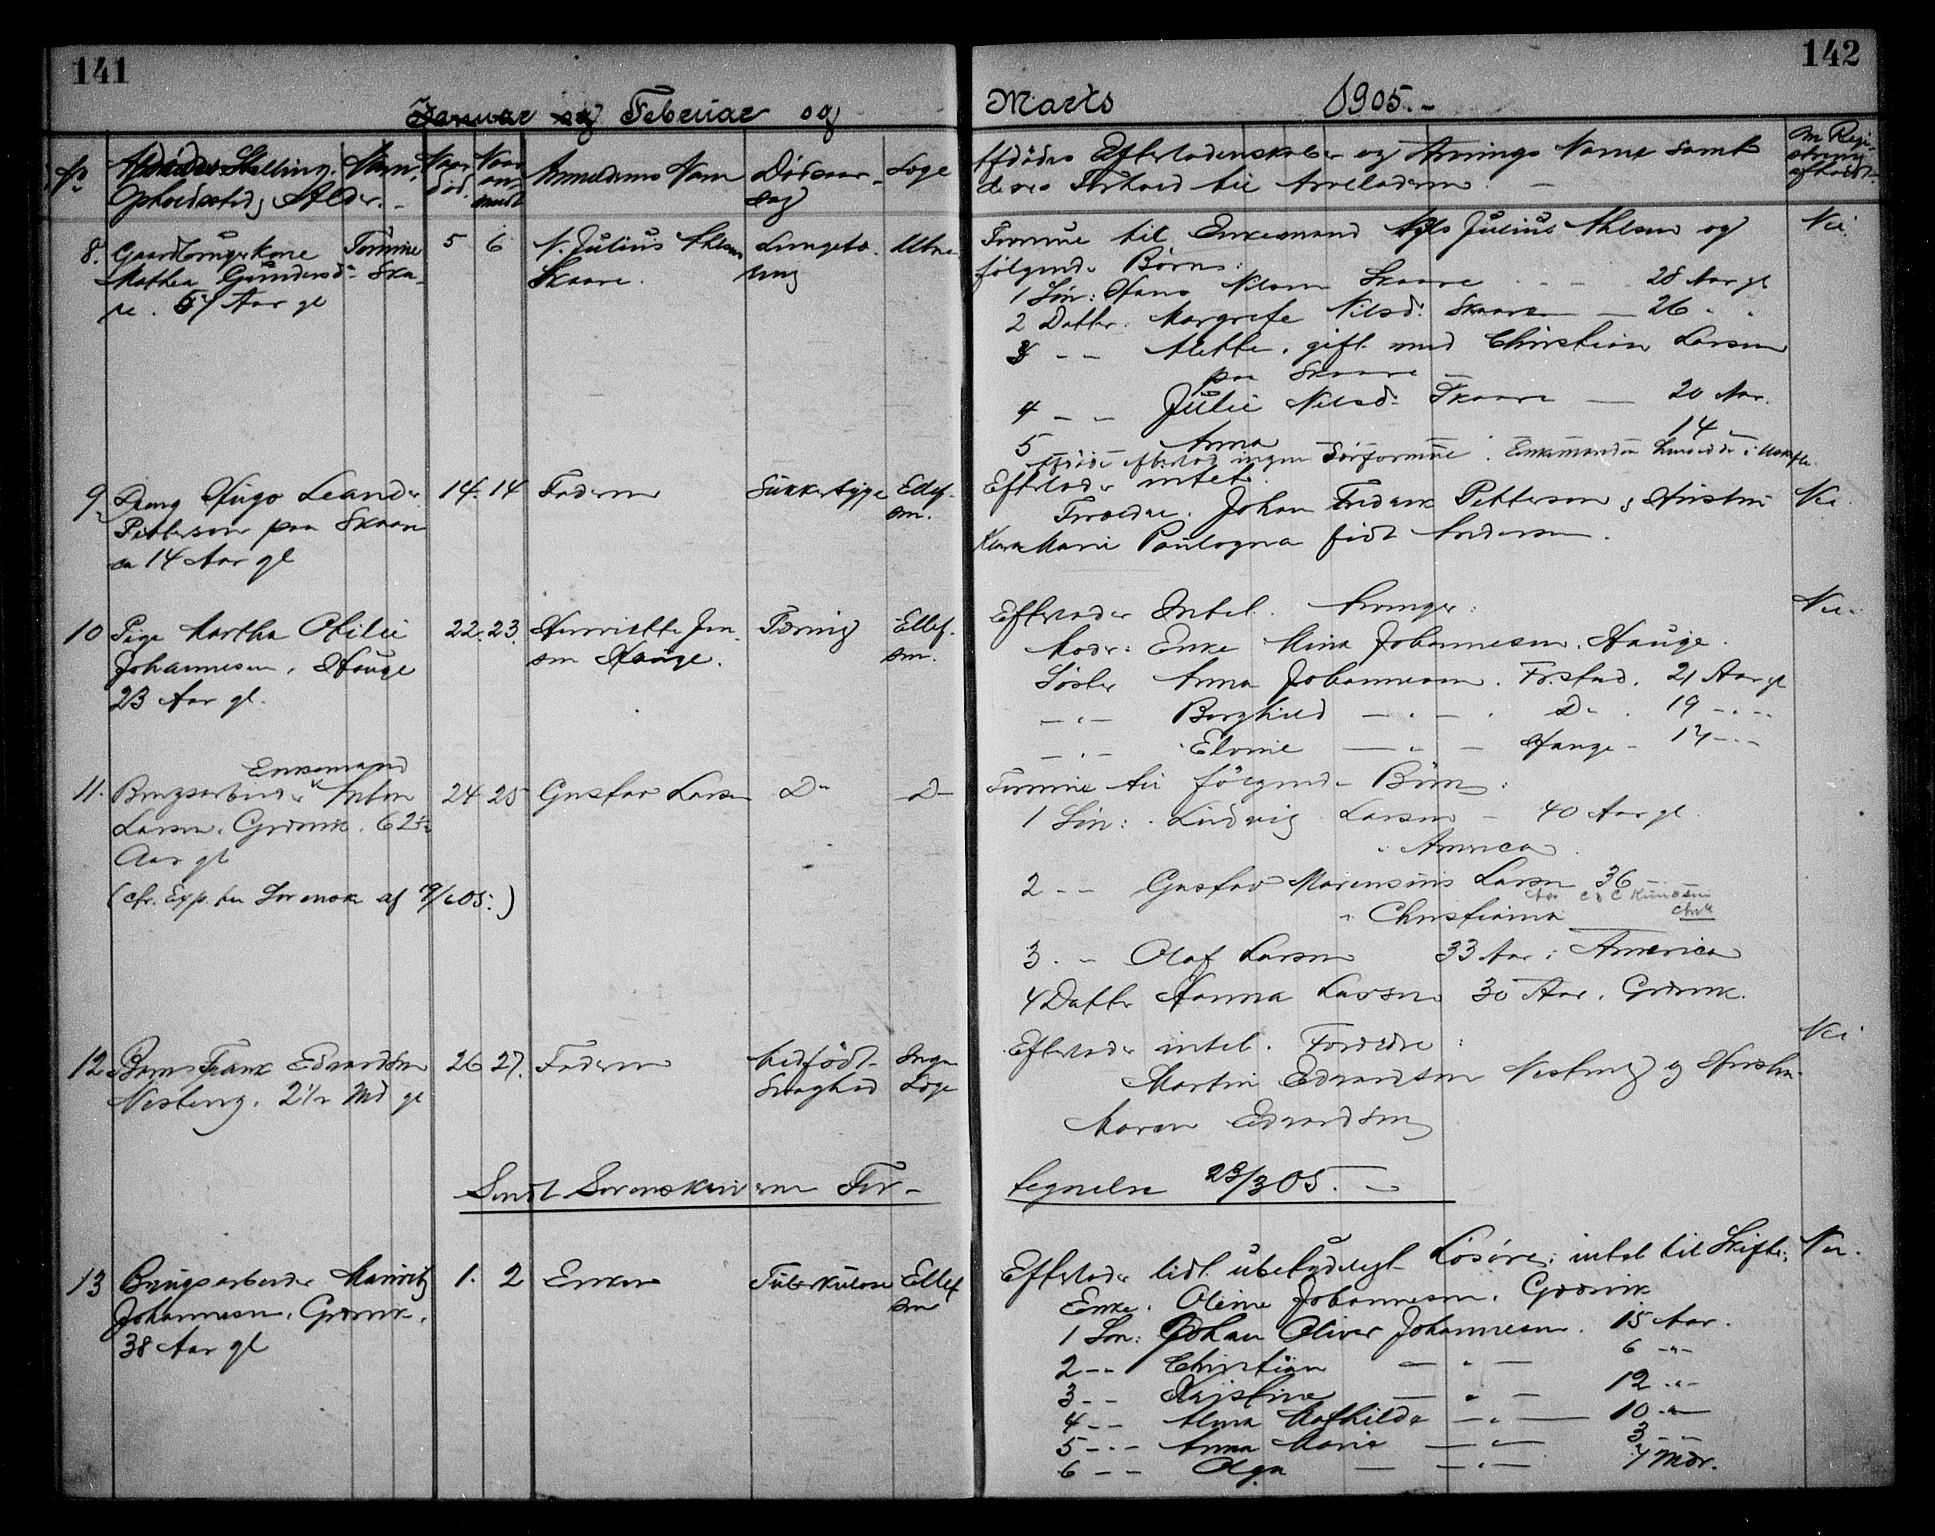 141
142
Januar og Februar og
Marts 1905.-
No
Afdødes Stilling, Navn,
Opholdssted, Alder.
Naar død.
Naar anmeldt
Anmelderens Navn
Dødsaarsag
Læge
Afdødes Efterladenskaber og Arvinges Navne samt
deres Forhold til Arveladeren.
Om Registrering afholdt
8. Gaardbrugerkone
Mathea Gundersd.
57 Aar gl
Formue
5 6
N. Julius Nilsen
Skaare.
Formue til Enkemand Nils Julius Nilsen og
følgende Børn:
1 Søn: Hans Nilsen Skaare - - 28 Aar gl
2 Datter: Margrete Nilsd. Skaare - 26 " "
3 - - Mette, gift med Christian Larsen
paa Skaare -
4 - - Julie Nilsd. Skaare - 20 Aar.
5 Anna 14 -
Afdøde efterlod ingen Særformue. Enkemanden
Nei
9. Dreng Hugo Leander
Pettersen paa Skaare
ca 14 Aar gl
14. 14
Faderen
Sukkersyge
Ellefsen.
Efterlader intet.
Forældre. Johan Fredrik Pettersen og Hustru
Marie født Andersen.
Nei
10 Pige Martha Otilie
Johannesen, Hauge
23 Aar gl.
22. 23.
Henriette Jensen Hauge.
Tæring
Ellefsen.
Efterlader Intet. Arvinger:
Moder: Enke Mina Johannesen, Hauge.
Søster Anna Johannesen. Fr.stad. 21 Aar gl
- " - Borghild - " - . Do . 19 - " -
- " - Elvine - " - Hauge - 14 - " -
Nei.
Enkemand
11. Brugsarbeider Anton
Larsen, Græsvik. 62½
Aar gl
(cfr. Exp. fra Sorensk. af 05.)
24 25
Gustav Larsen
Do
Do
Formue til følgende Børn:
1 Søn: Ludvig Larsen - 40 Aar gl.
i America
2 - - Gustav Larsen 36 -
i Christiania
3. - Olaf Larsen 33 Aar i America
4 Datter Hanna Larsen 30 Aar, Græsvik.
12. Barn Frank Edvardsen
2½ Md gl
26 27.
Faderen
Medfødt
Svaghed
Ingen
Læge
Efterlader intet. Forældre:
Martin Edvardsen og Hustru
Maren Edvardsen
Nei
Sendt Sorenskriveren For-
tegnelse 23/3 05. -
13 Brugsarbeider Mauritz
Johannesen, Græsvik,
38 Aar gl
1. 2
Enken
Tuberkulose
Ellefsen
Efterlader lidt ubetydeligt Løsøre; intet til Skifte.
Enke. Oline Johannesen, Græsvik
1 Søn: Johan Oliver Johannesen. 15 Aar.
2 - - Christian - " - 6 - " -
3 - - Kristine - " - 12 - " -
4 - - Alma Mathilde - " - 10 - " -
5 - " - Anna Marie - " - 3 - " -
6 - - Olga - " - 7 Mdr.
Nei.